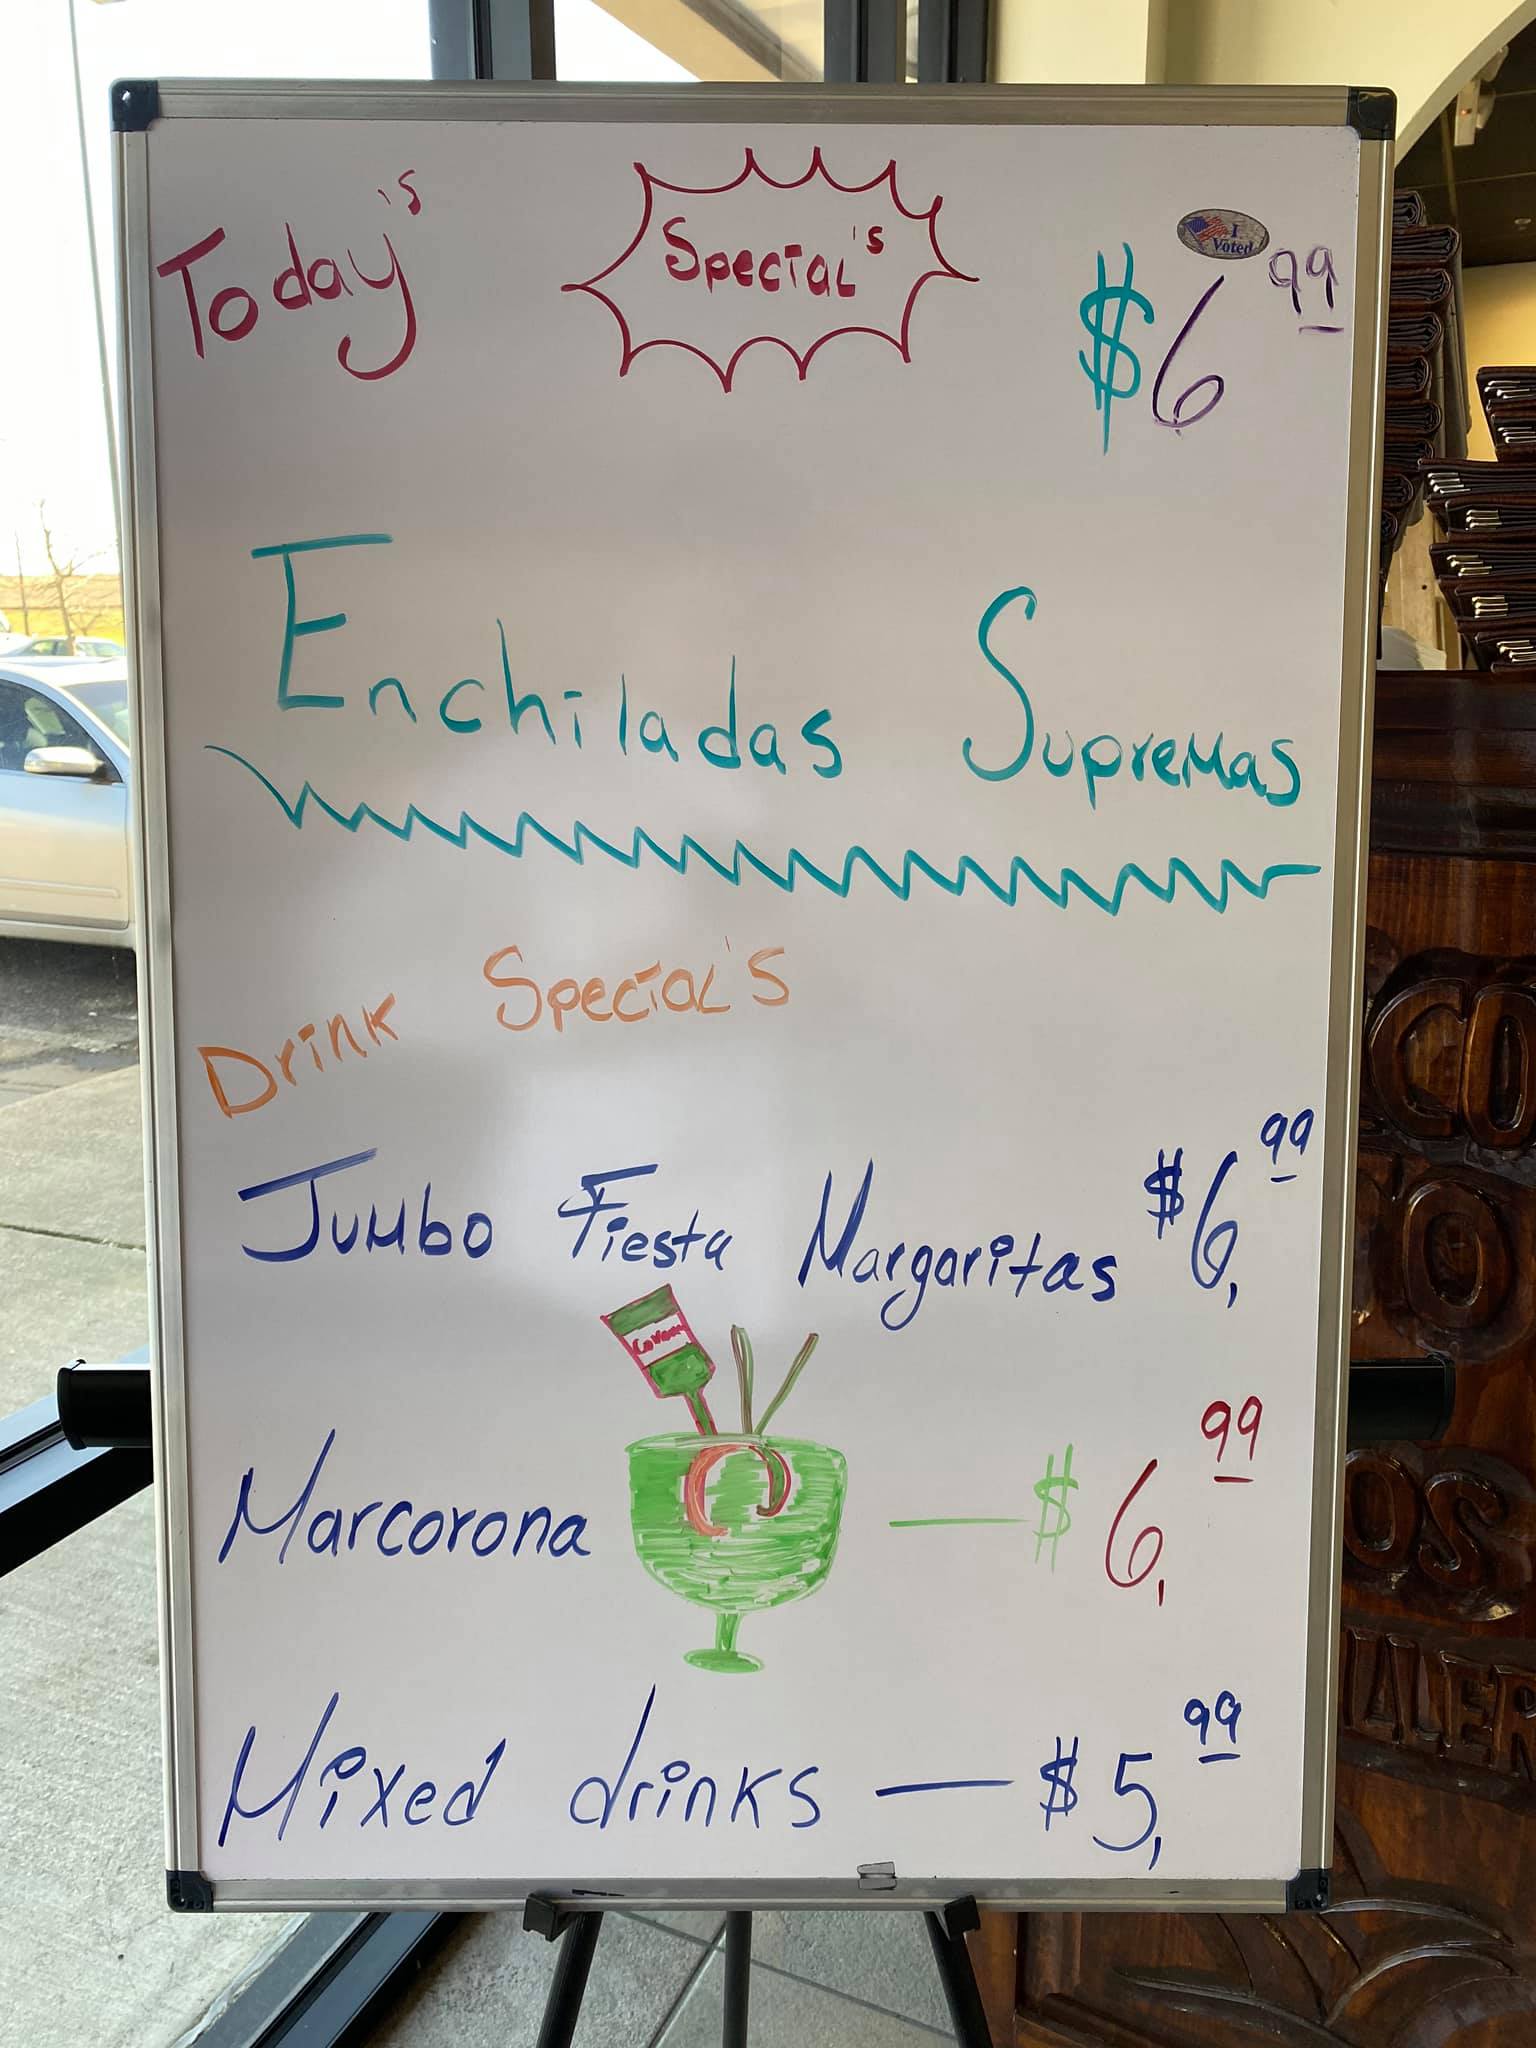 Today's Special's $6 99
I Voted
Enchiladas Supremas
Drink Special's
Jumbo Fiesta Margaritas $6,99
Corona
Marcorona — $6,99
Mixed drinks — $5,99
CO
TO
OS